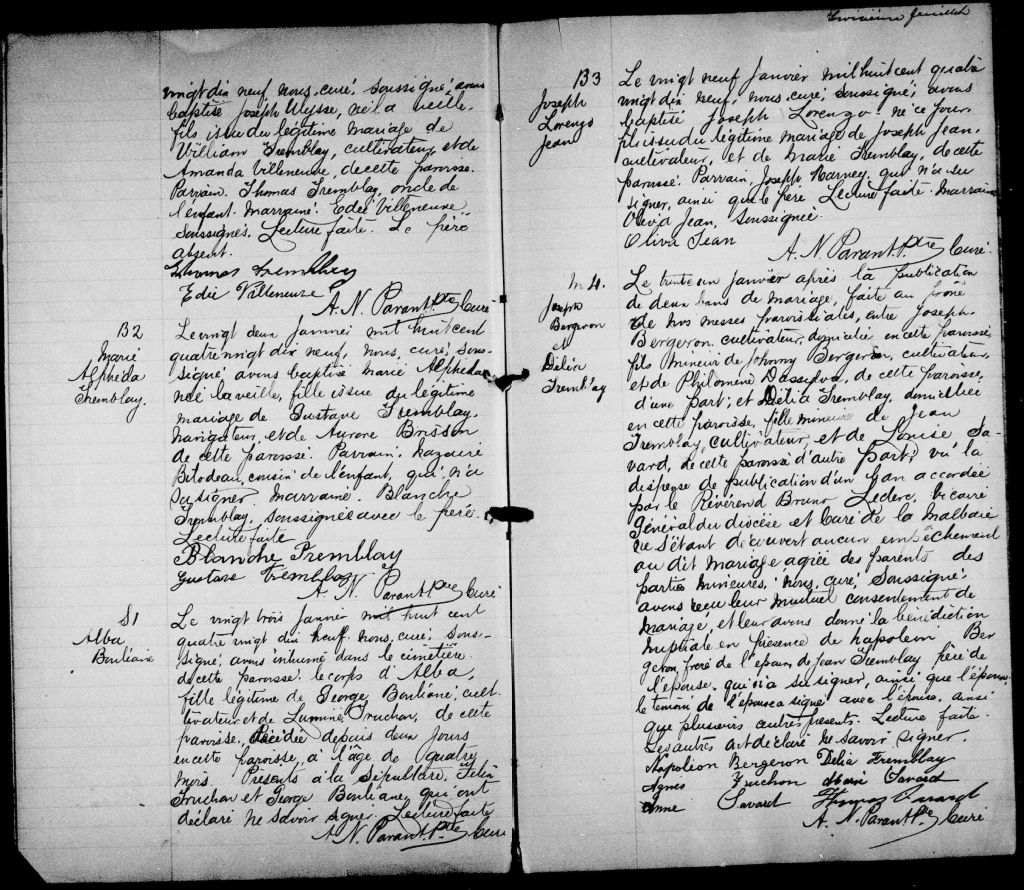 vingt dix neuf, nous, curé, soussigné, avons
baptisé Joseph Ulysse, né la veille
fils issu du légitime mariage de
William Tremblay, cultivateur, et de
Amanda Villeneuve, de cette paroisse.
Parrain. Thomas Tremblay, oncle de
l'enfant. Marraine. Edée Villeneuve
Soussignés. Lecture faite. Le père
absent.
Thomas Tremblay
Edée Villeneuve
A. N. Parant Ptre Curé
B2
Marie
Alphéda
Tremblay.
Le vingt deux Janvier mil huit cent
quatre vingt dix neuf, nous, curé, sous-
signé, avons baptisé Marie Alphéda
née la veille, fille issue du légitime
mariage de Gustave Tremblay,
navigateur, et de Aurore Brisson
de cette paroisse. Parrain. Nazaire
Bilodeau, cousin de l'enfant, qui n'a
su signer Marraine. Blanche
Tremblay, soussignée avec le père.
Lecture faite
Blanche Tremblay
Gustave Tremblay
A. N. Parant Ptre Curé
S1
Alba
Bouliane
Le vingt trois Janvier mil huit cent
quatre vingt dix neuf, nous, curé, sous-
signé, avons inhumé dans le cimetière
de cette paroisse le corps d'Alba,
fille légitime de George Bouliane, cult
tivateur et de Lumina Truchon, de cette
paroisse. Décédée depuis deux jours
en cette paroisse, à l'âge de quatre
mois. Présents à la sépulture, Félix
Truchon et George Bouliane, qui ont
déclaré ne savoir signer. Lecture faite
A. N. Parant Ptre Curé
Troisième feuillet
B3
Joseph
Lorenzo
Jean
Le vingt neuf Janvier mil huit cent quatre
vingt dix neuf, nous, curé, soussigné, avons
baptisé Joseph Lorenzo né ce jour
fils issu du légitime mariage de Joseph Jean,
cultivateur, et de Marie Tremblay, de cette
paroisse. Parrain, Joseph Harney, qui n'a su
signer, ainsi que le père Lecture faite. Marraine
Oliva Jean, soussignée.
Oliva Jean
A. N. Parant Ptre Curé
M4.
Joseph
Bergeron
et
Délia
Tremblay
Le trente un Janvier après la publication
de deux bans de mariage, faite au prône
de nos messes paroissiales, entre Joseph
Bergeron, cultivateur, domicilié en cette paroisse,
fils mineur de Johnny Bergeron, cultivateur
et de Philomène Dassylva, de cette paroisse,
d'une part; et Délia Tremblay, domiciliée
en cette paroisse, fille mineure de Jean
Tremblay, cultivateur, et de Louise Sa-
vard, de cette paroisse d'autre part; vu la
dispense de publication d'un ban accordée
par le Révérend Bruno Leclerc, Vicaire
Général du diocèse et Curé de la Malbaie
ne s'étant découvert aucun empêchement
au dit mariage, agréé des parents des
parties mineures, nous, curé, soussigné,
avons reçu leur mutuel consentement de
mariage, et leur avons donné la bénédiction
nuptiale en présence de Napoléon Ber
geron, frère de l'époux, de Jean Tremblay père de
l'épouse, qui n'a su signer, ainsi que l'époux,
le témoin de l'époux a signé avec l'épouse, ainsi
que plusieurs autres présents. Lecture faite.
Les autres ont déclaré ne savoir signer.
Napoléon Bergeron Délia Tremblay
Agnes Truchon Marie Savard
Anne Savard Thomas Savard
A. N. Parant Ptre Curé